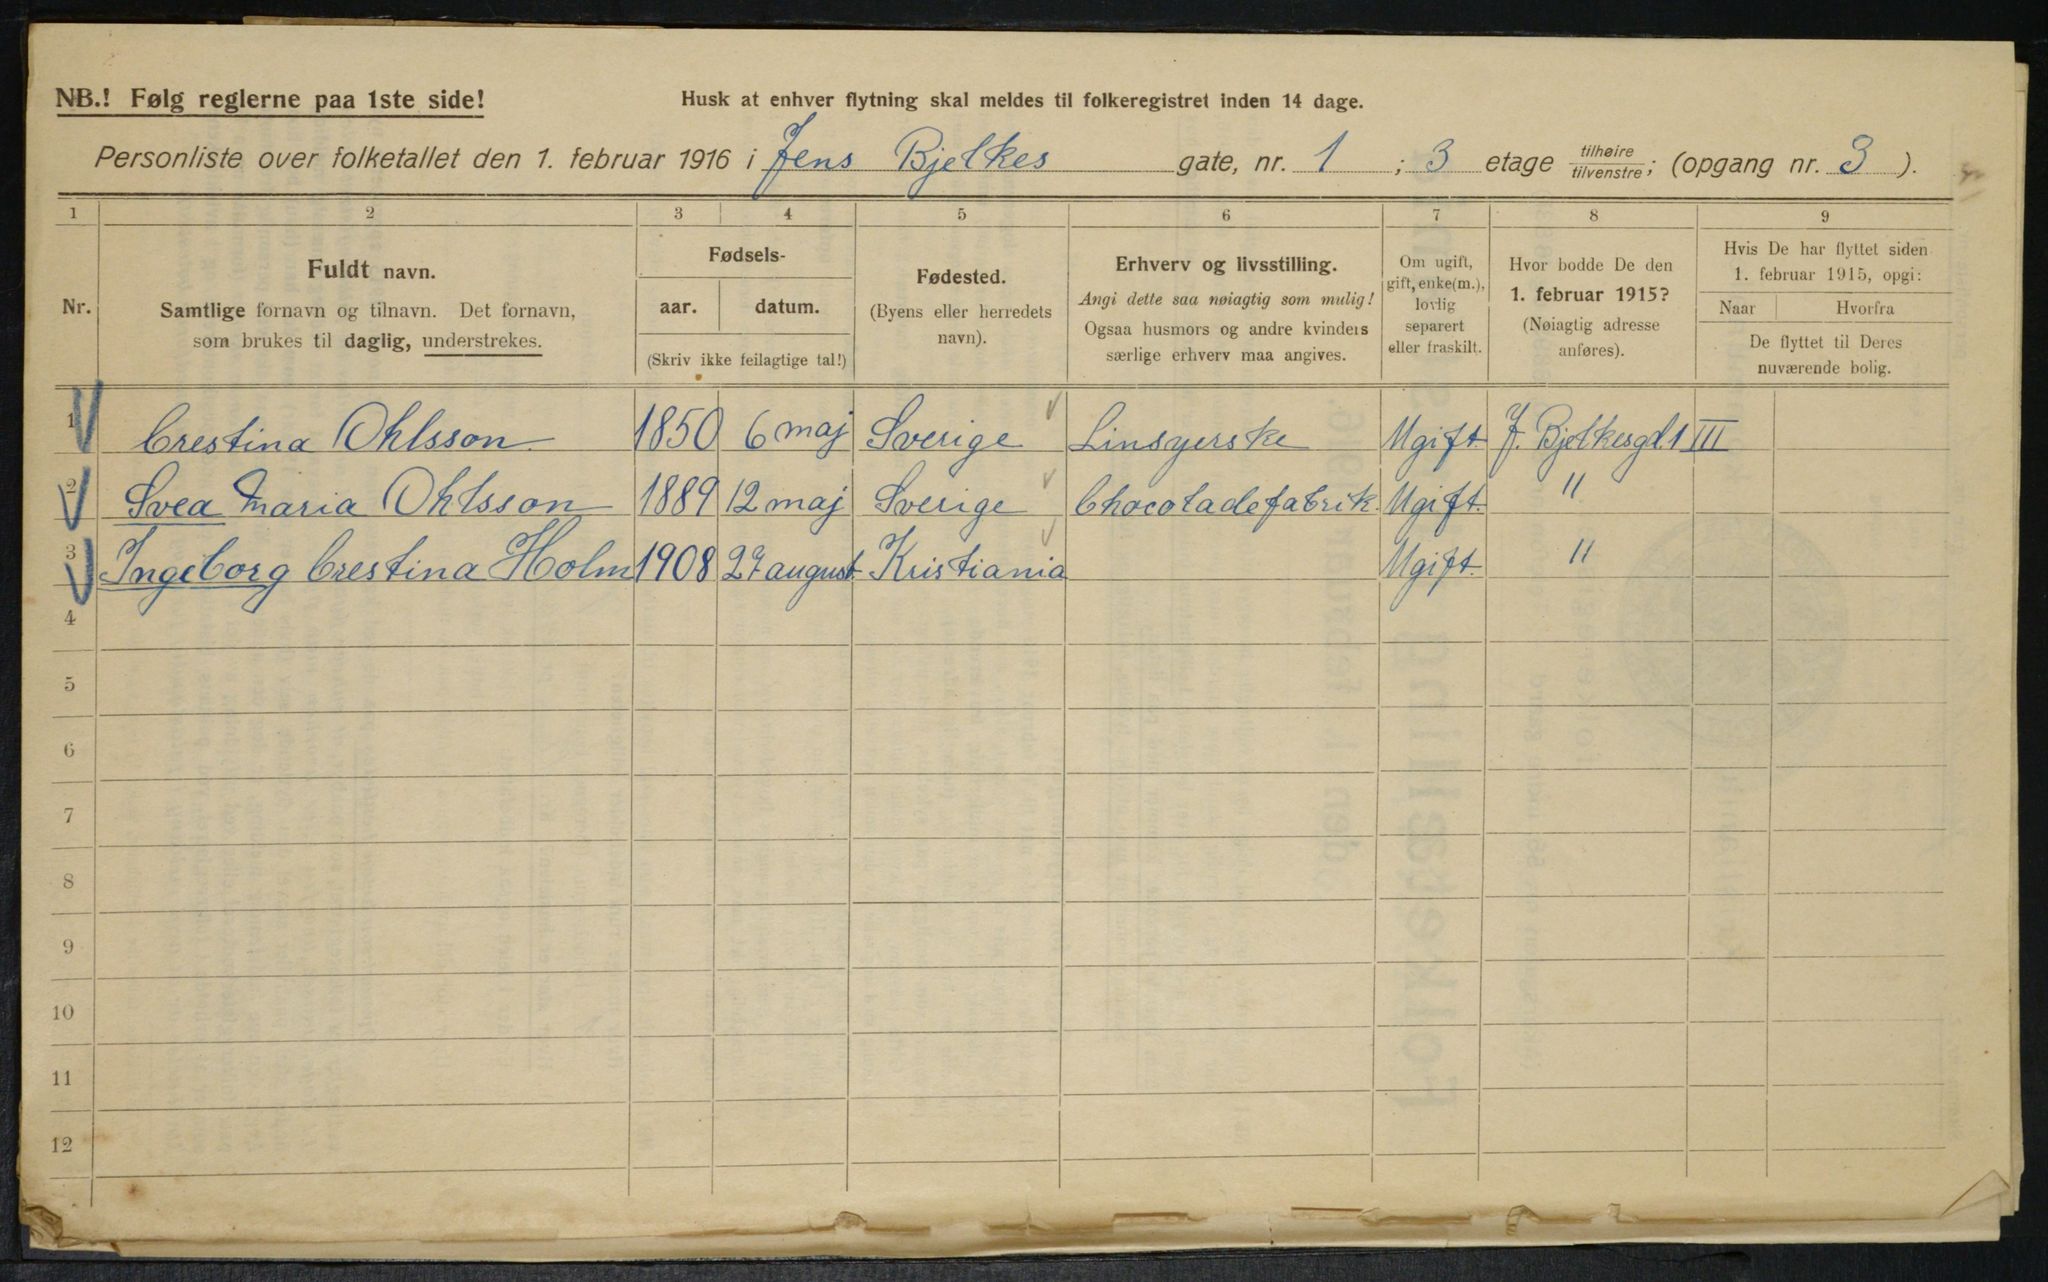 NB.! Følg reglerne paa 1ste side!
Husk at enhver flytning skal meldes til folkeregistret inden 14 dage.
Personliste over folketallet den 1. februar 1916 i Jens Bjelkes gate, nr. 1 ; 3 etage tilhøire/tilvenstre; (opgang nr. 3 ).
1 2 3 4 5 6 7 8 9
Nr.
Fuldt navn.
Samtlige fornavn og tilnavn. Det fornavn,
som brukes til daglig, understrekes.
Fødsels-
aar. datum.
(Skriv ikke feilagtige tal!)
Fødested.
(Byens eller herredets
navn).
Erhverv og livsstilling.
Angi dette saa nøiagtig som mulig!
Ogsaa husmors og andre kvinders
særlige erhverv maa angives.
Om ugift,
gift, enke(m.),
lovlig
separert
eller fraskilt.
Hvor bodde De den
1. februar 1915?
(Nøiagtig adresse
anføres).
Hvis De har flyttet siden
1. februar 1915, opgi:
Naar Hvorfra
De flyttet til Deres
nuværende bolig.
1 Crestina Ohlsson 1850 6 maj Sverige Linsyerske Ugift J. Bjelkesgd. 1 III
2 Svea Maria Ohlsson 1889 12 maj Sverige Chocoladefabrik. Ugift. "
3 Ingeborg Crestina Holm 1908 27 august Kristiania Ugift. "
4
5
6
7
8
9
10
11
12